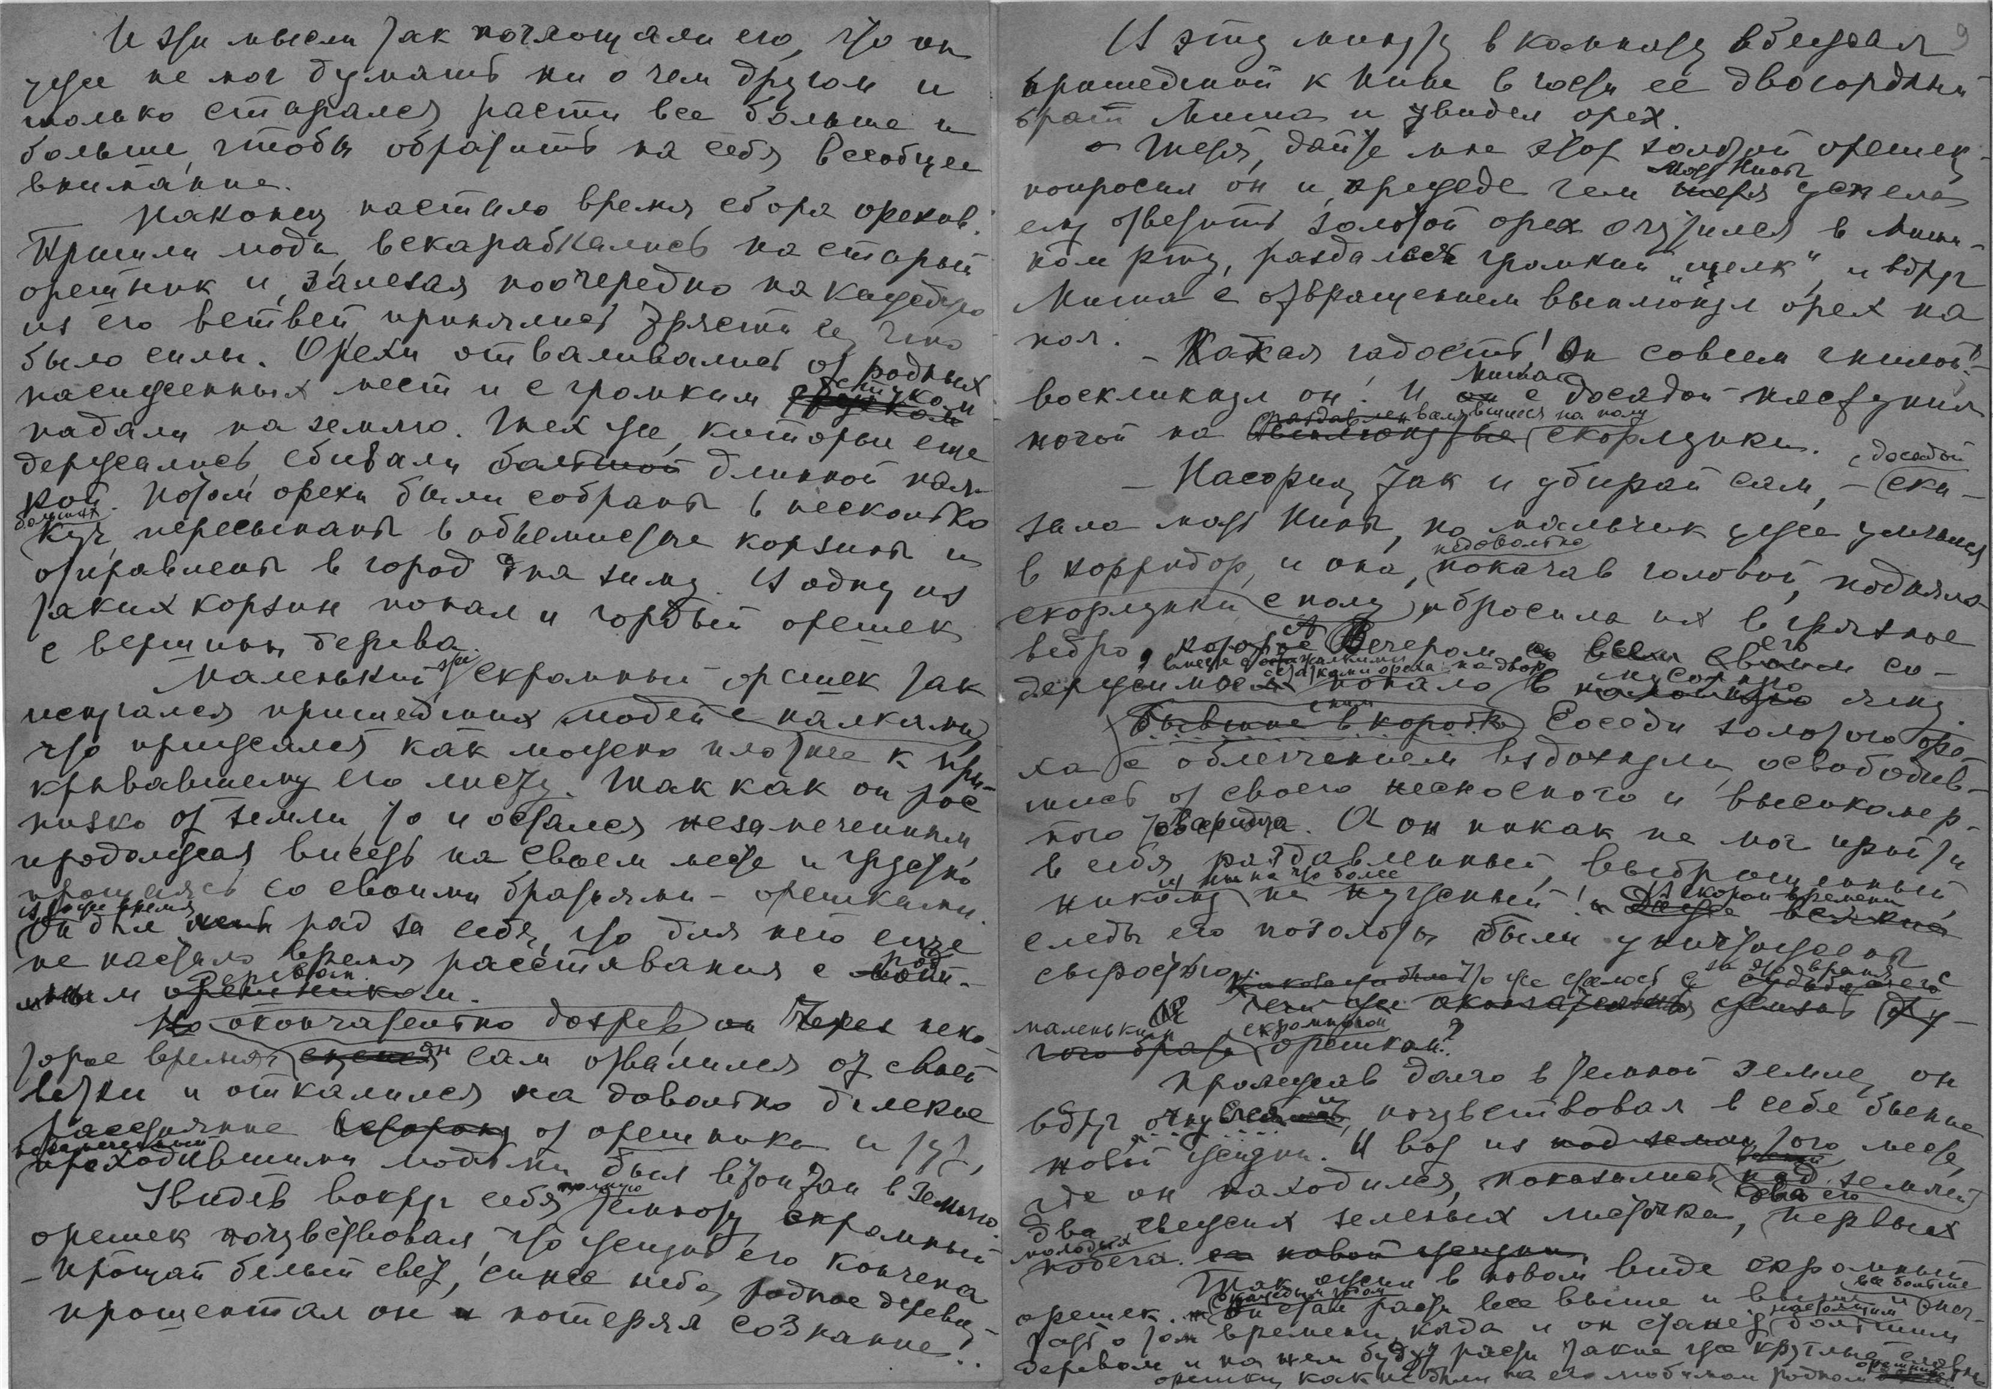 И эти мысли так поглощали его, что он
уже не мог думать ни о чем другом и
только старался расти все больше и
больше, чтобы обратить на себя всеобщее
внимание.
Наконец настало время сбора орехов.
Пришли люди, вскарабкались на старый
орешник и, залезая поочередно на каждую
из его ветвей, принялись трясти ее, что
было силы. Орехи отваливались от родных
насиженных мест и с громким стуком
падали на землю. Тех же, которые еще
держались, сбивали большой длинной пал-
кой. Потом орехи были собраны в несколько
больших
куч, пересыпаны в объемистые корзины и
отправлены в город на зиму. В одну из
таких корзин попал и гордый орешек
с вершины дерева.
Маленький же скромный орешек так
испугался пришедших людей с палками,
что прижался как можно плотнее к при-
крывавшему его листу. Так как он рос
низко от земли, то и остался незамеченным,
продолжая висеть на своем месте и грустно
прощаясь со своими братьями - орешками.
В то же время
Он был рад за себя, что для него еще
не настало время расставания с род-
ным деревом.
орешником.
Но окончательно дозрев, он Через неко-
торое время он сам отвалился от своей
ветки и откатился на довольно далекое
расстояние от орешника и тут,
проходившими людьми был втоптан в землю.
Увидев вокруг себя полную темноту, скромный
орешек почувствовал, что жизнь его кончена
- Прощай белый свет, синее небо, родное дерево,-
прошептал он и потерял сознание!..
9
В эту минуту в комнату вбежал
пришедший к Нине в гости её двоюродный
брат Миша и увидел орех.
- Тетя, дайте мне этот золотой орешек,-
попросил он и, прежде чем мать Нины тетя успела
ему ответить золотой орех очутился в Миши-
ном рту, раздался громкий „щелк", и вдруг
Миша с отвращением выплюнул орех на
пол.
- Какая гадость! Он совсем гнилой!-
воскликнул он. И Миша он с досадой наступил
валявшиеся на полу
ногой на выплюнутые скорлупки.
с досадой
- Насорил, так и убирай сам, - ска-
зала мать Нины, но мальчик уже умчался
недовольно
в корридор, и она, покачав головой, подняла
скорлупки с полу и бросила их в грязное
ведро, которое А Вечером его со-
вместе с жалкими остатками ореха на двор
держимое попало в мусорную яму.
Бывшие с ним в коробке Соседи золотого оре-
ха с облегчением вздохнули, освободив-
шись от своего несносного и высокомер-
ного товарища. А он никак не мог прийти
в себя раздавленный, выброшенный,
и ни на что более
никому не нужный! В скором времени Даже всякие
следы его позолоты были уничтожены
сыростью.
что же сталось за это время с
маленьким скромным
того брата орешком?
Пролежав долго в темной земле, он
вдруг очнулся, почувствовал в себе биение
новой жизни. И вот из под земли того места,
где он находился, показались над землей
два свежих зеленых листочка, два его первых
молодых
побега. новой жизни.
Так ожил в новом виде скромный
орешек. Он стал расти все выше и выше и меч-
все больше
тать о том времени, когда и он станет настоящим большим
деревом и на нем будут расти такие же круглые славные
орешки, какие были на его любимом родном орешнике